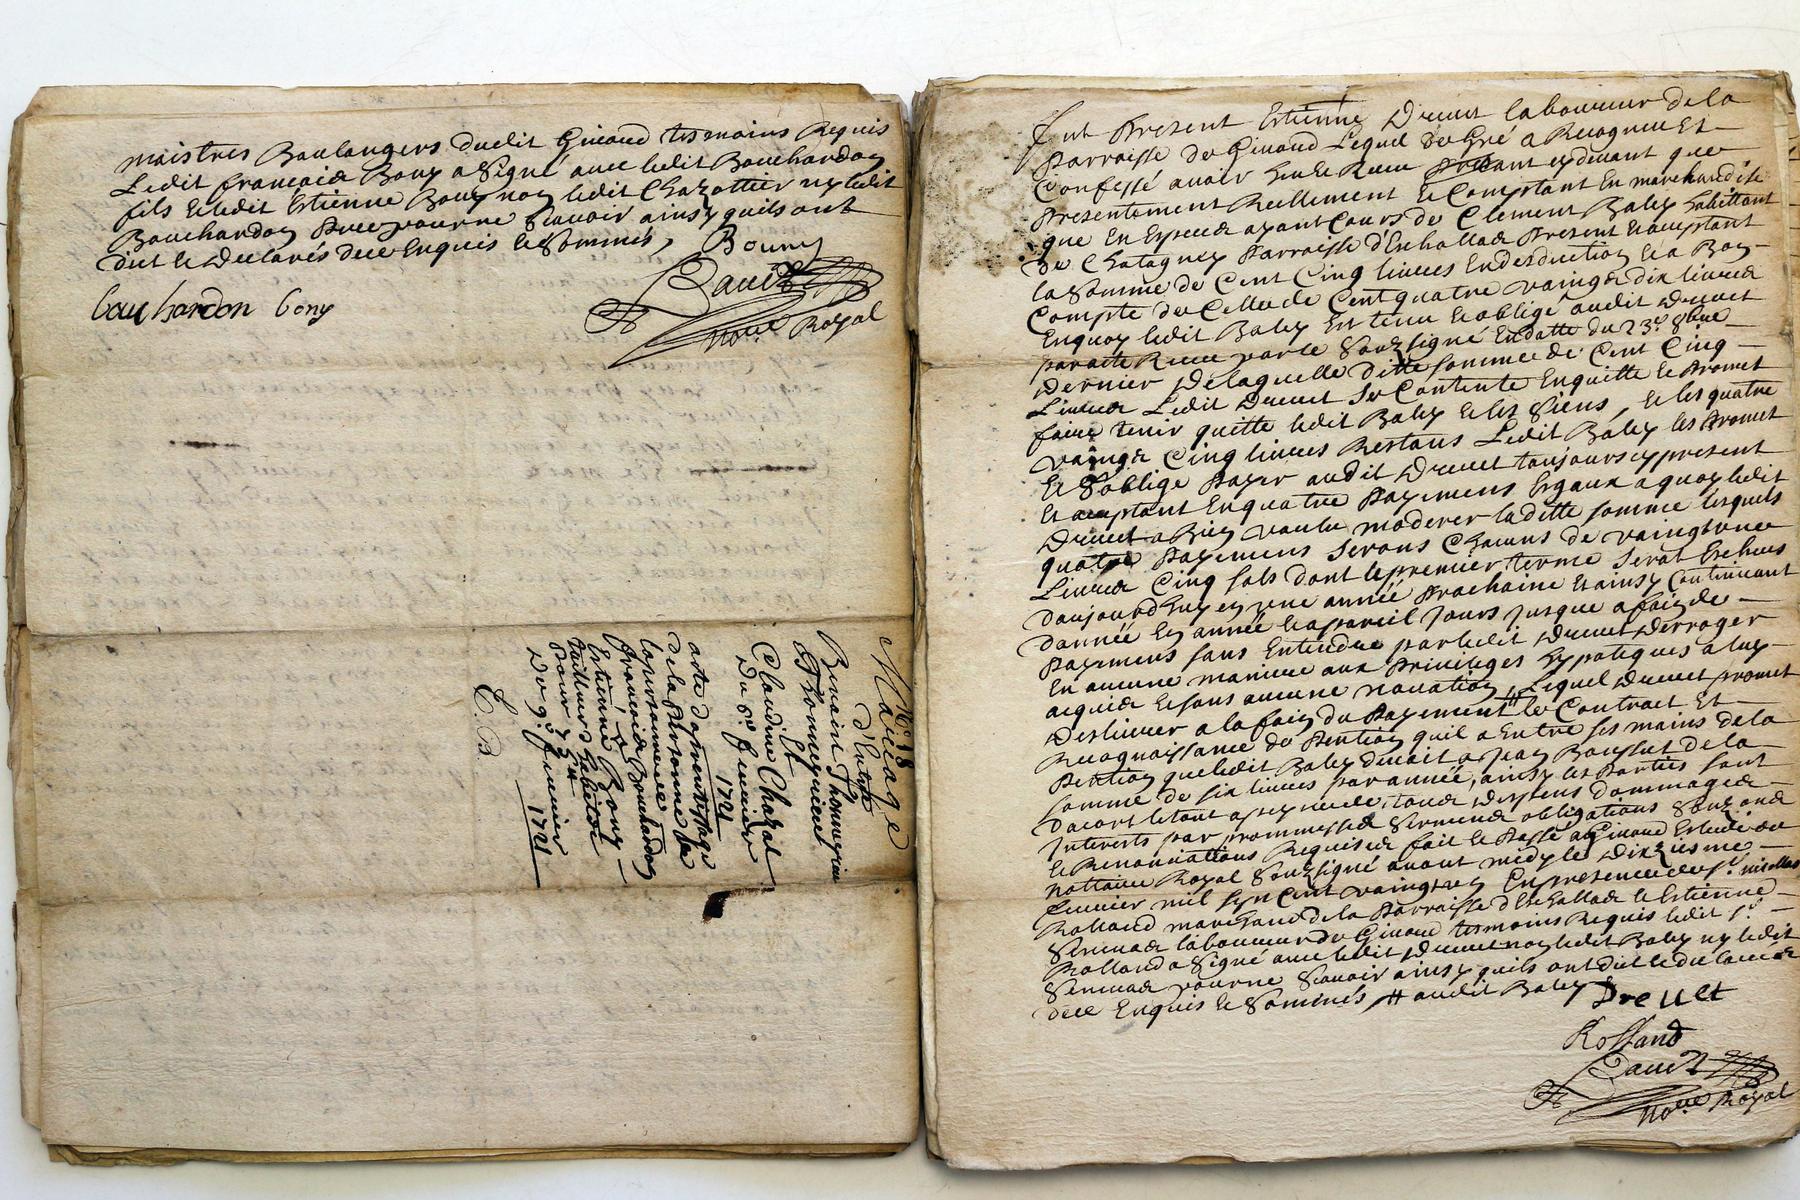 maistres Boulangers dudit Givaud tesmoins Requis
Ledit francois Bouy a Signé avec ledit Bouchardon
fils Et ledit Estienne Bouy non ledit Chazottier ny ledit
Bouchardon Pere pour ne Scavoir ainsy quils ont
dict et declarés de ce Enquis et Sommés,
Bouny
bouchardon bony
David
No.re Royal
N.o 18
Mariage
d'Entre
Benoist Thommeyrieu
Et
Claudine Chazal
Du 6.e fevrier
1721
acte daprentissage
de la personne de
francois Bouchardon
a
Estienne Bouy
tailleur habitant
pour
Du 9.e fevrier
1721
C. B.
fut Present Estienne Drevet laboureur de la
Parroisse de Givaud Lequel de Gré a Recogneu Et
Confessé avoir heu et Receu cy devant que
Presentement Reellement Et Comptant En marchandise
que En Espece ayant Cours de Clement Baley habittant
de Chatagney Parroisse d'Eschallas Present Et aceptant
la Somme de Cent Cinq livres En desduction Et a Bon
Compte de Celle de Cent quatre vaingts dix livres
En quoy ledit Baley Est tenu Et obligé audit Drevet
par acte Receu par le Soubsigné En datte du 23.e 8bre
dernier De laquelle ditte somme de Cent Cinq
Livres Ledit Drevet Se Contente En quitte Et Promet
faire tenir quitte ledit Baley Et les Siens, Et les quatre
vaingts Cinq livres Restans Ledit Baley les Promet
Et S'oblige Payer audit Drevet toujours cy present
Et aceptant En quatre Payemens Esgaux a quoy ledit
Drevet a Bien voulu moderer laditte somme lesquels
quatre Payemens Serons Chacuns de vaingt une
Livres Cinq sols dont le premier terme Serat Escheus
daujourdhuy en une année Prochaine Et ainsy Continuant
dannée En année Et a pareil Jours jusque a fin de
Payemens sans Entendre par ledit Drevet Derroger
En aucune maniere aux Privileges hypoteques a luy
acquis Et sans aucune novation, Lequel Drevet promet
Deslivrer a la fin du Payement # le Contract Et
Recognoissance de Pention quil a Entre ses mains de la
Pention que ledit Baley devait a Jean Bousset de la
somme de six livres par année, ainsy les Parties sont
Dacort le tout a peyne de tous Despens Dommages
Interests par prommesses Serments obligations Soubs
Et Renonciations Requises fait Et Passé a Givaud Estude du
nottaire Royal Soubsigné avant midy le Dixziesme
fevrier mil sept Cent vaingt En presence de s.r nicollas
Rolland marchand de la Parroisse d'Eschallas Et Estienne
laboureur de Givaud tesmoins Requis ledit s.r
Rolland a Signé avec ledit Drevet non ledit Baley ny ledit
pour ne Scavoir ainsy quils ont dict Et declarés
de ce Enquis Et Sommés # audit Baley
Drevet
Rolland
David
No.re Royal